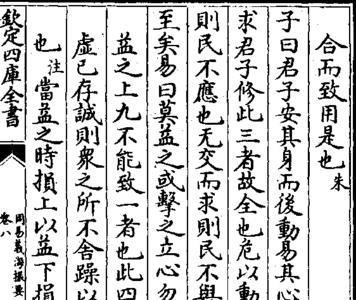 合而致用是也朱
子曰君子安其身而後動易其心
求君子修此三者故全也危以動
則民不應也无交而求則民不與
至矣易曰莫益之或擊之立心勿
益之上九不能致一者也此四
虛已存誠則衆之所不舍躁以
也注當益之時損上以益下損
欽定四庫全書
周易義海撮要
卷八